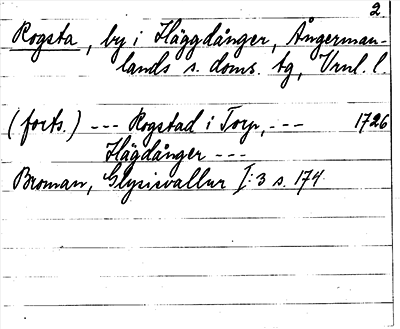 2
Rogsta, by i Häggdånger, Ångerman-
lands s. doms. tg, Vrnl. l.
(forts.) --- Rogstad i Torp, --- 1726
Hägdånger ---
Broman, Glysisvallur I:3 s. 174